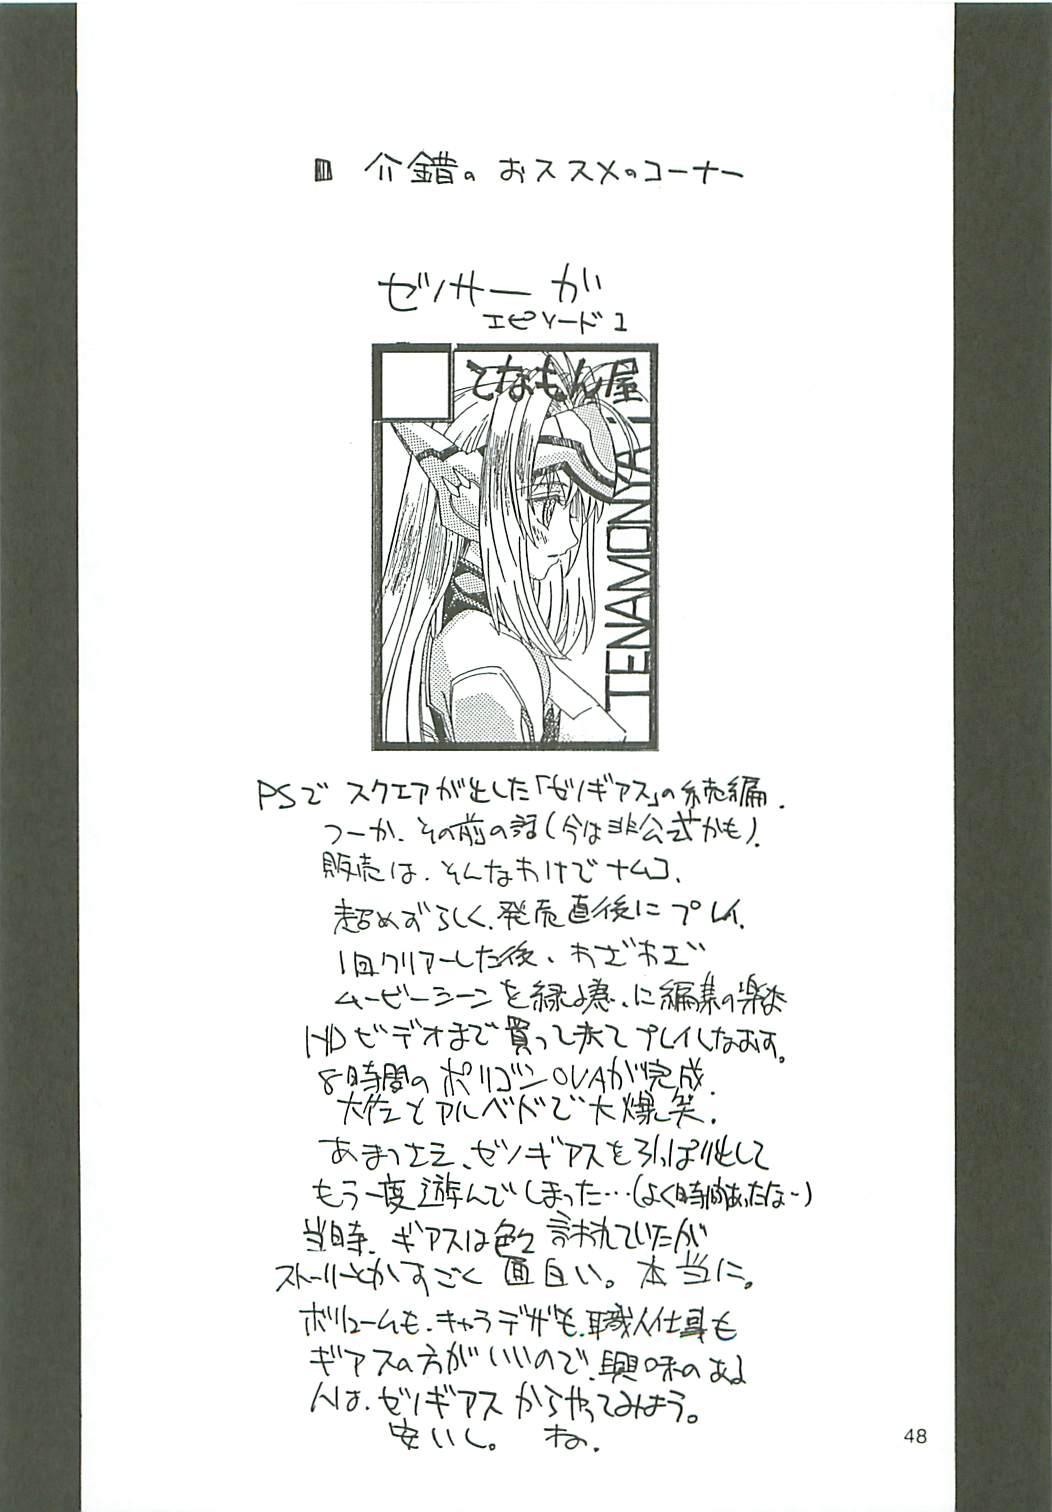 介錯の おススメのコーナー
ゼノサーガ
エピソード1
てなもん屋
TENAMONYA
PSで スクエアが出した「ゼノギアス」の続編.
つーか、その前の話(今は非公式かも).
販売は、そんなわけでナムコ.
超めずらしく、発売直後にプレイ.
1回クリアーした後、わざわざ
ムービーシーンを に編集の楽な
HDビデオまで買って来てプレイしなおす。
8時間のポリゴンOVAが完成.
大佐とアルベドで大爆笑.
あまつさえ、ゼノギアスを引っぱり出して
もう一度遊んでしまった…(よく時間あったな~)
当時、ギアスは色々言われていたが
ストーリーとかすごく 面白い。本当に。
ボリュームも、キャラデザも、職人仕事も
ギアスの方がいいので、興味のある
人は、ゼノギアスからやってみよう。
安いし。 ね.
48